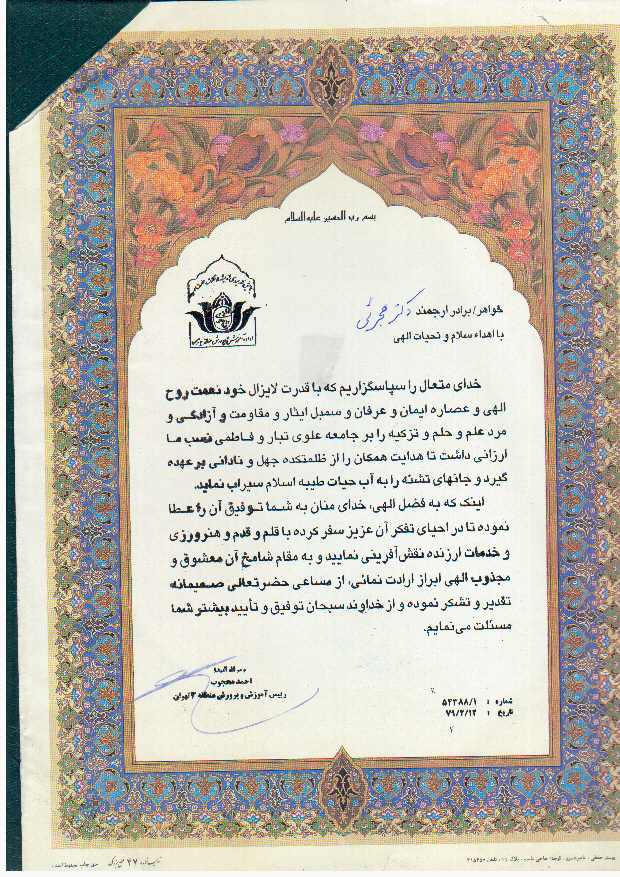 بسم رب الحسین علیه السلام
خواهر/برادر ارجمند دکتر
با اهداء سلام و تحیات الهی
خدای متعال را سپاسگزاریم که با قدرت لایزال خود نعمت روح
الهی و عصاره ایمان و عرفان و سمبل ایثار و مقاومت و آزادگی و
مرد علم و حلم و تزکیه را بر جامعه علوی تبار و فاطمی نسب ما
ارزانی داشت تا هدایت همگان را از ظلمتکده جهل و نادانی بر عهده
گیرد و جانهای تشنه را به آب حیات طیبه اسلام سیراب نماید.
اینک که به فضل الهی، خدای منان به شما توفیق آن را عطا
نموده تا در احیای تفکر آن عزیز سفر کرده با قلم و قدم و هنرورزی
و خدمات ارزنده نقش‌آفرینی نمایید و به مقام شامخ آن معشوق و
مجذوب الهی ابراز ارادت نمائی، از مساعی حضرتعالی صمیمانه
تقدیر و تشکر نموده و از خداوند سبحان توفیق و تأیید بیشتر شما
مسئلت می‌نمایم.
احمد محجوب
رییس آموزش و پرورش منطقه ۳ تهران
شماره : ۵۴۳۸۸/۱
تاریخ : ۷۹/۲/۱۲
۴۷
حق چاپ محفوظ است